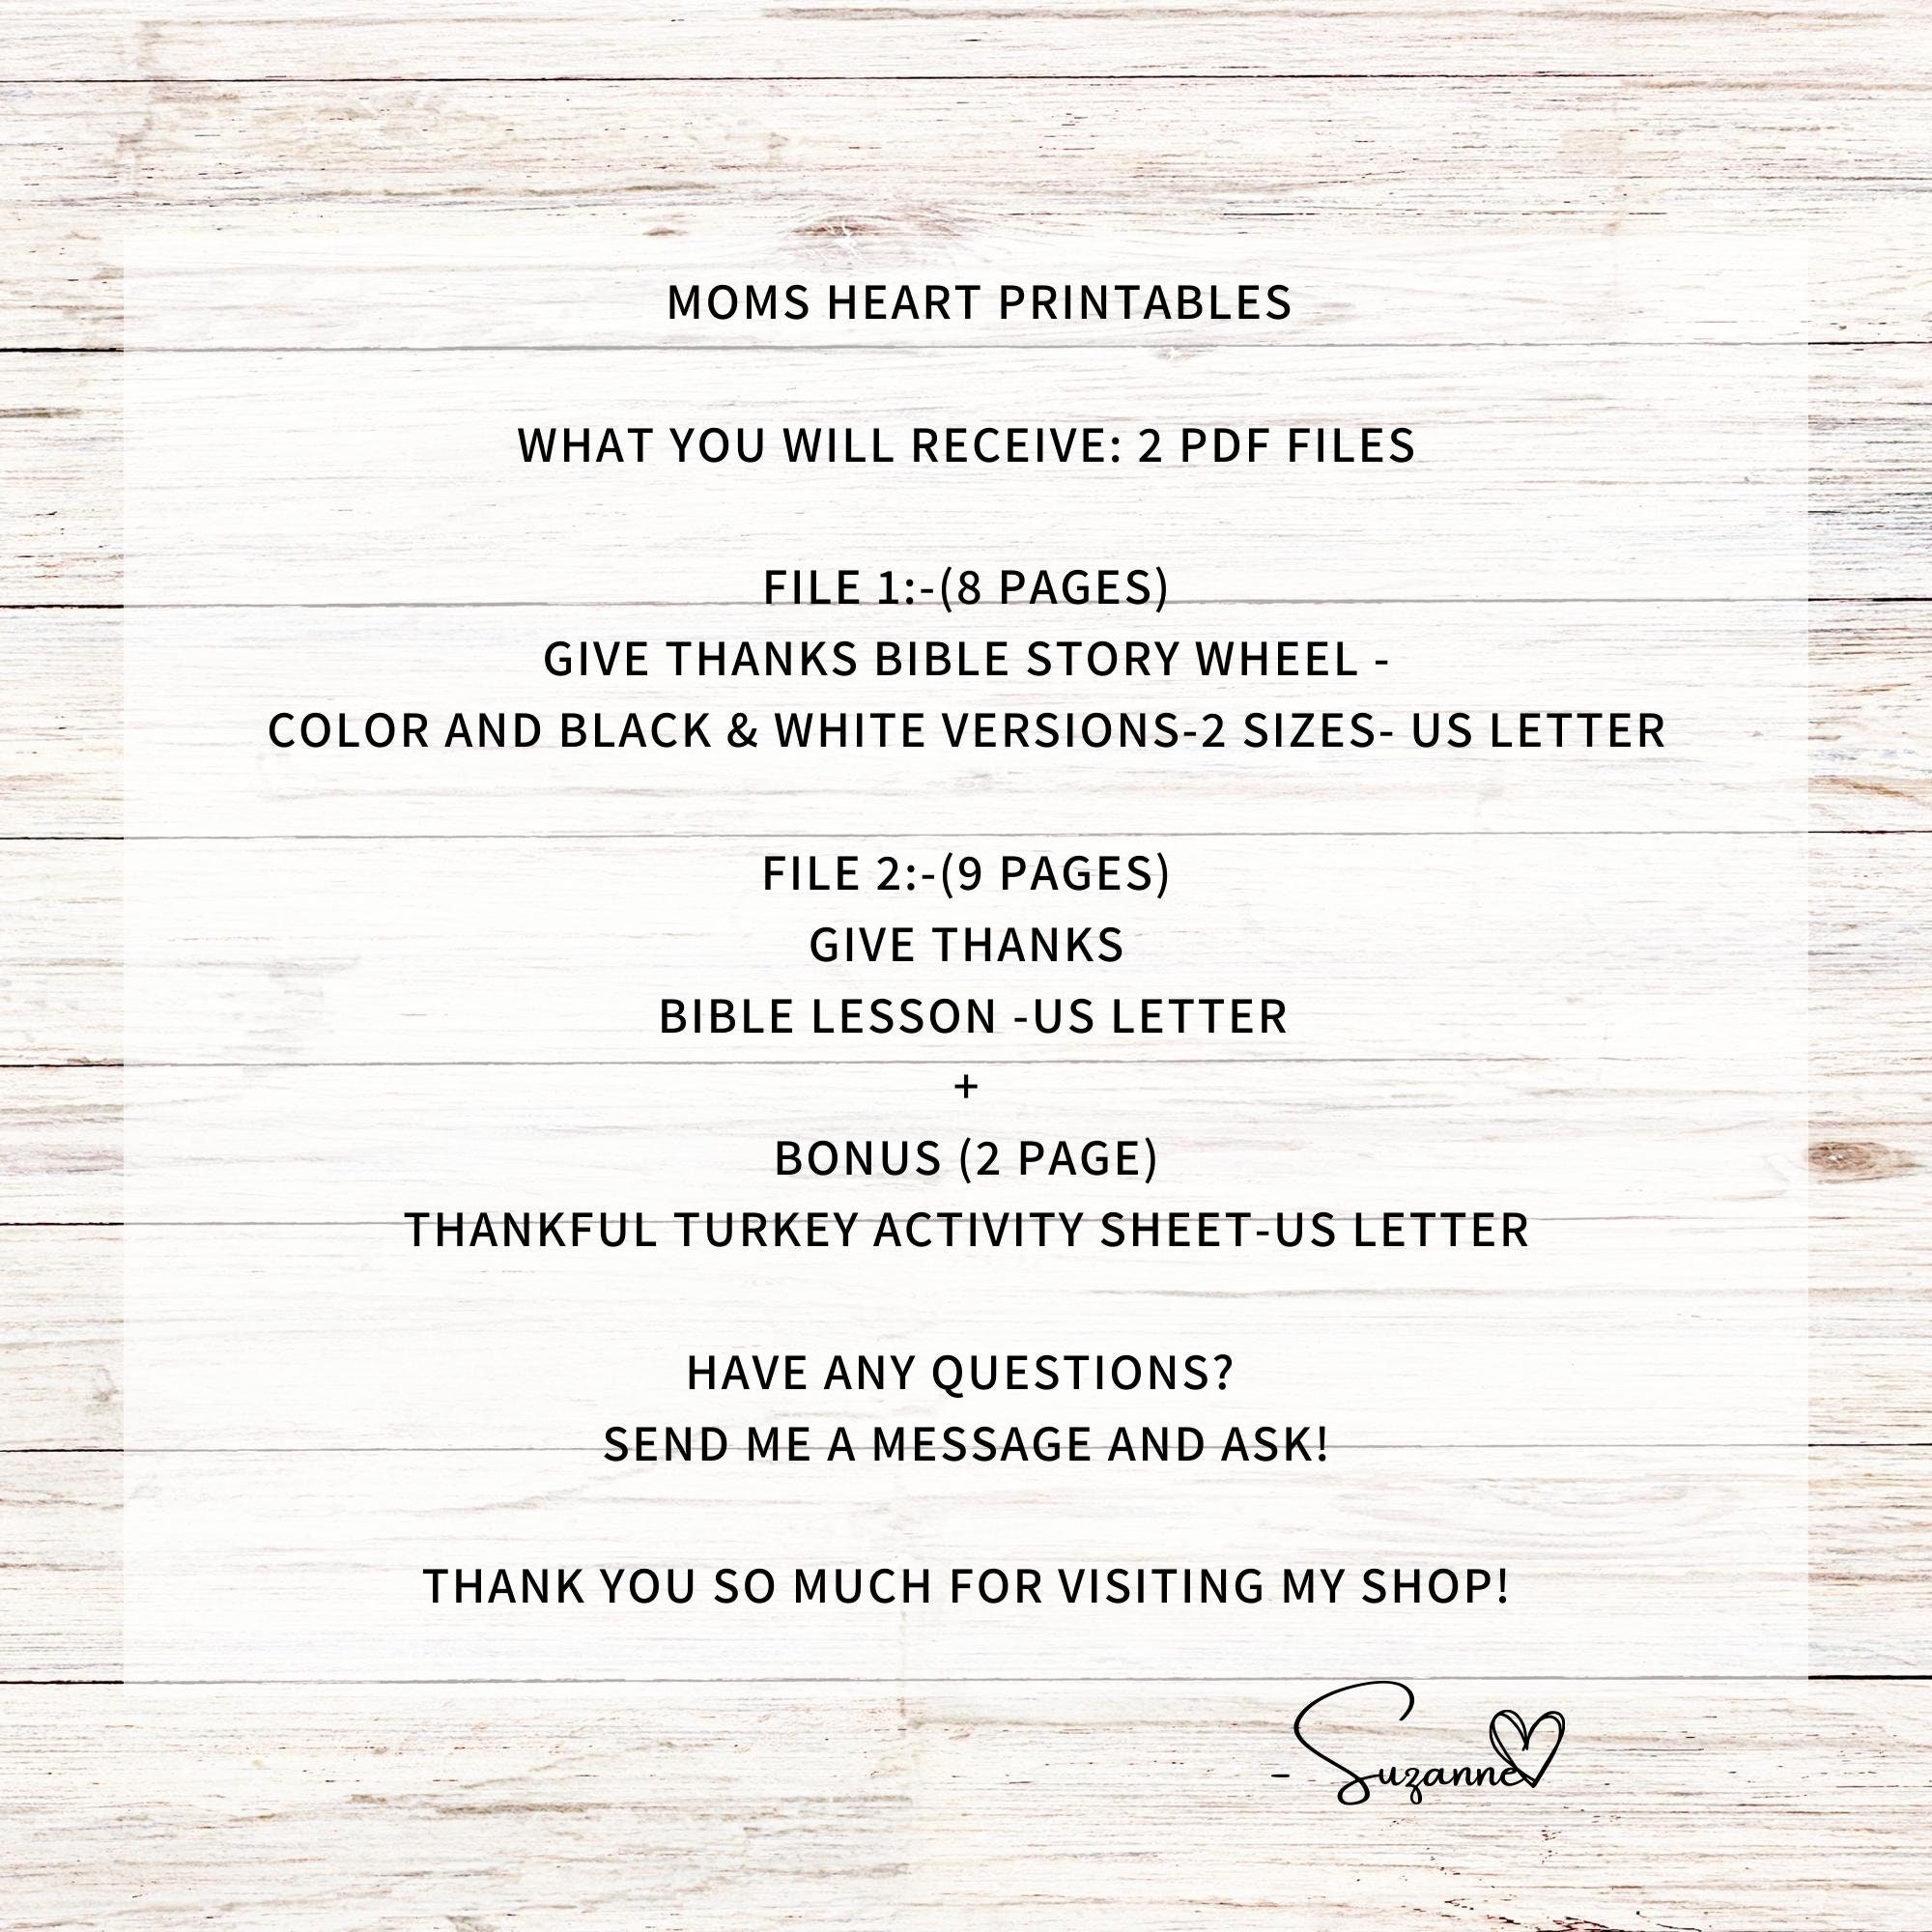 MOMS HEART PRINTABLES
WHAT YOU WILL RECEIVE: 2 PDF FILES
FILE 1:-(8 PAGES)
GIVE THANKS BIBLE STORY WHEEL -
COLOR AND BLACK & WHITE VERSIONS-2 SIZES- US LETTER
FILE 2:-(9 PAGES)
GIVE THANKS
BIBLE LESSON -US LETTER
+
BONUS (2 PAGE)
THANKFUL TURKEY ACTIVITY SHEET-US LETTER
HAVE ANY QUESTIONS?
SEND ME A MESSAGE AND ASK!
THANK YOU SO MUCH FOR VISITING MY SHOP!
- Suzanne